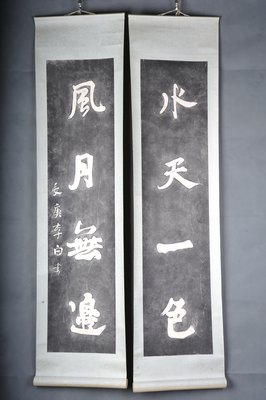 水天一色
風月無邊
長庚李白書